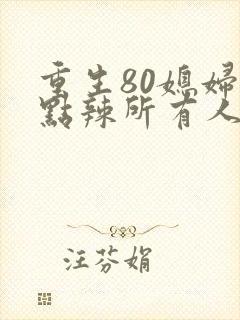 重生80媳婦
點辣所有人
汪芬娟